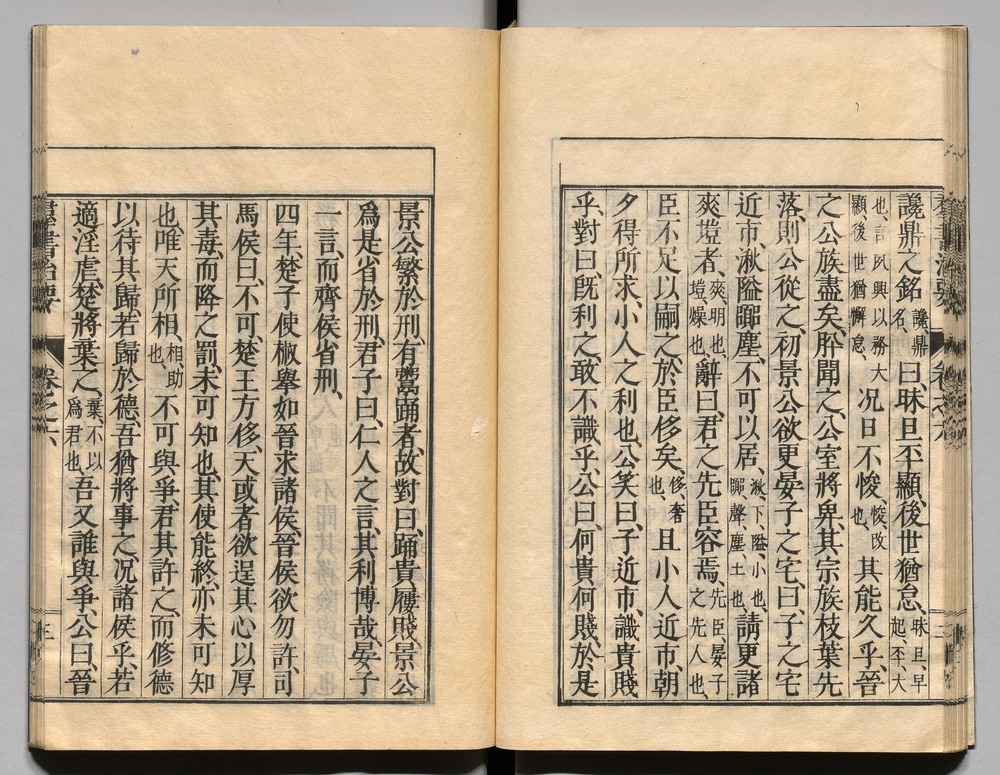 讒鼎之銘、讒、鼎名、曰、昧旦丕顯、後世猶怠、昧旦、早起、丕、大
也、言夙興以務大顯、後世猶懈怠、況日不悛、悛、改也、其能久乎、晉
之公族盡矣、肸聞之、公室將卑、其宗族枝葉先
落、則公從之、初景公欲更晏子之宅、曰、子之宅
近市、湫隘嚻塵、不可以居、湫、下、隘、小也、嚻、聲、塵土也、請更諸
爽塏者、爽、明也、塏、燥也、辭曰、君之先臣容焉、先臣、晏子之先人也、
臣不足以嗣之、於臣侈矣、侈、奢也、且小人近市、朝
夕得所求、小人之利也、公笑曰、子近市、識貴賤
乎、對曰、既利之、敢不識乎、公曰、何貴、何賤、於是
景公繁於刑、有鬻踊者、故對曰、踊貴屨賤、景公
爲是省於刑、君子曰、仁人之言、其利博哉、晏子
一言、而齊侯省刑、
四年、楚子使椒舉如晉求諸侯、晉侯欲勿許、司
馬侯曰、不可、楚王方侈、天或者欲逞其心、以厚
其毒、而降之罰、未可知也、其使能終、亦未可知
也、唯天所相、相、助也、不可與爭、君其許之、而修德
以待其歸、若歸於德、吾猶將事之、況諸侯乎、若
適淫虐、楚將棄之、棄、不以爲君也、吾又誰與爭、公曰、晉
羣書治要 卷之六 三